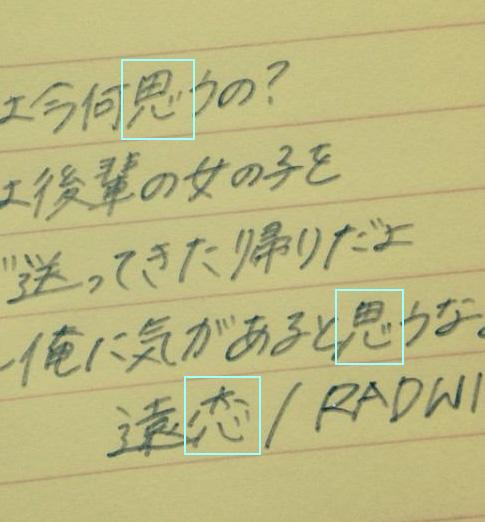 は今何思うの?
は後輩の女の子を
送ってきた帰りだよ
俺に気があると思うな
遠恋/RADWI